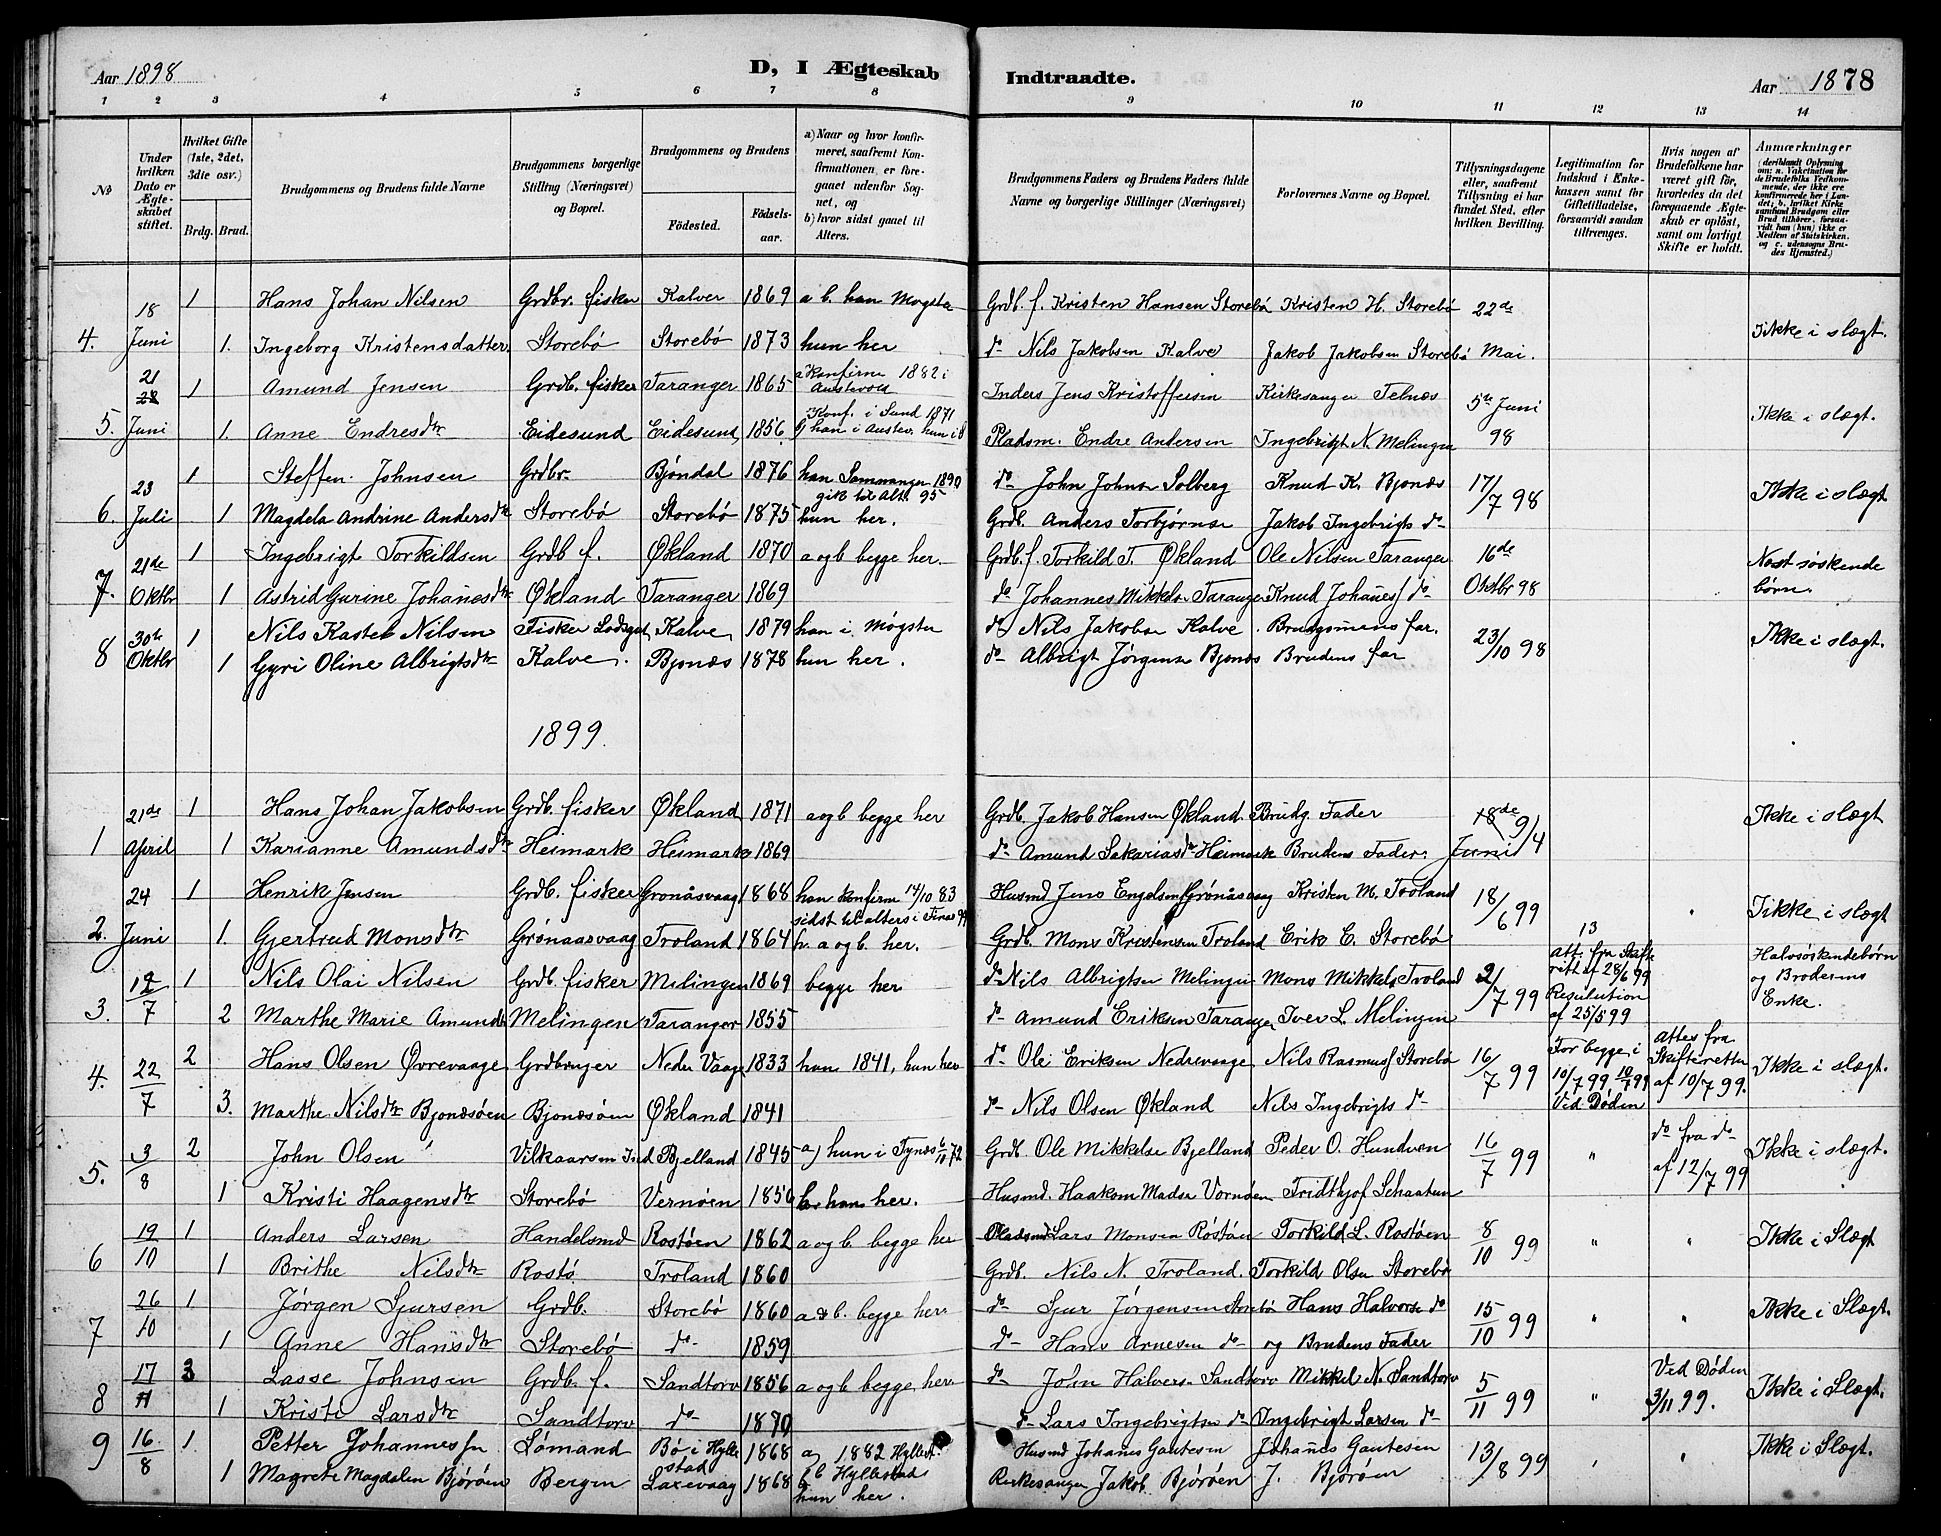 Aar 1898 D, I Ægteskab Indtraadte. Aar 1878
1 2 3 4 5 6 7 8 9 10 11 12 13 14
No
Under hvilken Dato er Ægteskabet stiftet.
Hvilket Gifte (1ste, 2det, 3die osv.)
Brdg. Brud.
Brudgommens og Brudens fulde Navne
Brudgommens borgerlige Stilling (Næringsvei) og Bopæl.
Brudgommens og Brudens
Fødested. Fødselsaar.
a) Naar og hvor konfirmeret, saafremt Konfirmationen er foregaaet udenfor Sognet, og
b) hvor sidst gaaet til Alters.
Brudgommens Faders og Brudens Faders fulde Navne og borgerlige Stillinger (Næringsvei)
Forlovernes Navne og Bopæl.
Tillysningsdagene eller, saafremt Tillysning ei har fundet Sted, efter hvilken Bevilling.
Legitimation for Indskud i Enkekassen samt for Giftetilladelse, forsaavidt saadan tiltrænges.
Hvis nogen af Brudefolkene har været gift før, hvorledes da det foregaaende Ægteskab er opløst, samt om lovligt Skifte er holdt.
Anmærkninger
4. 18 Juni 1 Hans Johan Nilsen Grdbr. fisker Kalver 1869 a b. han Mogster Grdb. f. Kristen Hansen Storebø Kristen H. Storebø 22de
1. Ingeborg Kristensdatter Storebø Storebø 1873 hun her do Nils Jakobsen Kalve Jakob Jakobsen Storebø Mai. Ikke i slægt.
5. 21 Juni 1 Amund Jensen Grdb. fisker Taranger 1865 a Konfirm 1882 i Austevold Inders Jens Kristoffersen Kirkesanger Telnæs 5te Juni
1. Anne Endresdtr Eidesund Eidesund 1856 Konf. i Sund 1871 han i Austev. Pladsm. Endre Andersen Ingebrigt N. Melingen 98 Ikke i slægt.
6. 23 Juli 1 Steffen Johnsen Grdbr. Bjøndal 1876 han Sammanger 1890 gik til Alt. 95 do John Johns. Solberg Knud K. Bjonæs 17/7 98
1 Magdela Andrine Andersdtr Storebø Storebø 1875 hun her. Grdb. Anders Torbjørnse Jakob Ingebrigts do Ikke i slægt
7. 21de Oktbr 1 Ingebrigt Torkildsen Grdb f. Økland 1870 a og b begge her. Grdb. f. Torkild T. Økland Ole Nilsen Taranger 16de
1 Astrid Gurine Johanesdtr Økland Taranger 1869 do Johannes Mikkels. Taranger Knud Johanes do Oktbr 98 Næst søskende børn.
8 30te Oktbr 1 Nils Kastel Nilsen Fisker Kalve 1879 han i Møgster do Nils Jakobse Kalve Brudgomens far. 23/10 98
1 Gyri Oline Albrigtsdtr Kalve. Bjonæs 1878 hun her. do Albrigt Jørgense Bjonæs Brudens far Ikke i slægt.
1899.
1 21de April 1 Hans Johan Jakobsen Grdb. fisker Økland 1871 a og b begge her Grdb. Jakob Hansen Økland. Brudg. Fader 18de Juni 9/4
1 Karianne Amundsdtr Heimark Heimark 1869 do Amund Sakarias Heimark Brudens Fader. Ikke i slægt
2. 24 Juni 1 Henrik Jensen Grdb. fisker Gronåsvaag 1868 han konfirm 14/10 83 sidst til alters i Husmd Jens Engelsen Grønåsvaag Kristen M. Troland 18/6 99
1. Gjertrud Monsdtr Grønaasvaag Troland 1864 a og b. her. Grdb. Mons Kristensen Troland Erik E. Storebø Ikke i slægt
3. 12/7 1 Nils Olai Nilsen Grdb. fisker Melingen 1869 begge her do Nils Albrigtsen Melingen Mons Mikkels. Troland 2/7 99 13 Att. fra Skifterett af 28/6 99 Resulution af 25/5 99 Halvsöskendebørn og Broderens Enke.
2 Marthe Marie Amunds Melingen Taranger 1855 do Amund Eriksen Taranger Iver L. Melingen
4. 22/7 2 Hans Olsen Øvrevaage Grdbruger Neder Vaage 1833 han 1841, hun her do Ole Eriksen Nedrevaage Nils Rasmus Storebø 16/7 99 For begge i 10/7 99 10/7 99 Ved Døden attes fra Skifteretten af 10/7 99. Ikke i slægt.
3. Marthe Nilsdtr Bjonæsøen Bjonæsøen Økland 1841 do Nils Olsen Økland Nils Ingebrigts do
5. 3/8 2 John Olsen Vilkaarsm Ind Bjelland 1845 a) hun i Tysnæs 6/10 72 Grdb. Ole Mikkelse Bjelland Peder O. Hundven 16/7 99 " do fra do af 12/7 99 Ikke i slægt.
1 Kristi Haagensdtr Storebø Vernøen 1856 han her. Husmd. Haakom Madse Vornøen Fridthjof Schaatun
6 19/10 1 Anders Larsen Handelsmd Rostøen 1862 a og b. begge her Pladsmd Lars Monsen Röstøen Torkild L. Rostøen 8/10 99 " " Ikke i Slægt
1 Brithe Nilsdtr Rostø Troland 1860 Grdb. Nils N. Troland. Torkild Olse Storebø
7 26/10 1 Jørgen Sjursen Grdb. Storebø 1860 a & b. begge her do Sjur Jørgensen Storebø Hans Halvorse do 15/10 99 " " Ikke i Slægt.
1 Anne Hansdtr Storebø do 1859 do Hans Arnesen do og Brudens Fader
8 17/11 3 Lasse Johnsen Grdb. f. Sandtorv 1856 a og b. begge her do John Halvors. Sandtorv Mikkel N. Sandtorv 5/11 99 " Ved Døden 3/11 99. Ikke i Slægt.
1 Kristi Larsdtr Sandtorv do 1870 do Lars Ingebrigtsen do Ingebrigt Larsen do
9 16/8 1 Petter Johannesen Sømand Bø i Hyllestad 1868 a) 1882 Hyllest. b Hyllestad Husmd Johanes Gautesen Johanes Gautesen 13/8 99 " " Ikke i Slægt.
1 Magrete Magdalen Bjørøen Bergen Laxevaag 1868 hun her. Kirkesanger Jakob Bjørøen J. Bjørøen